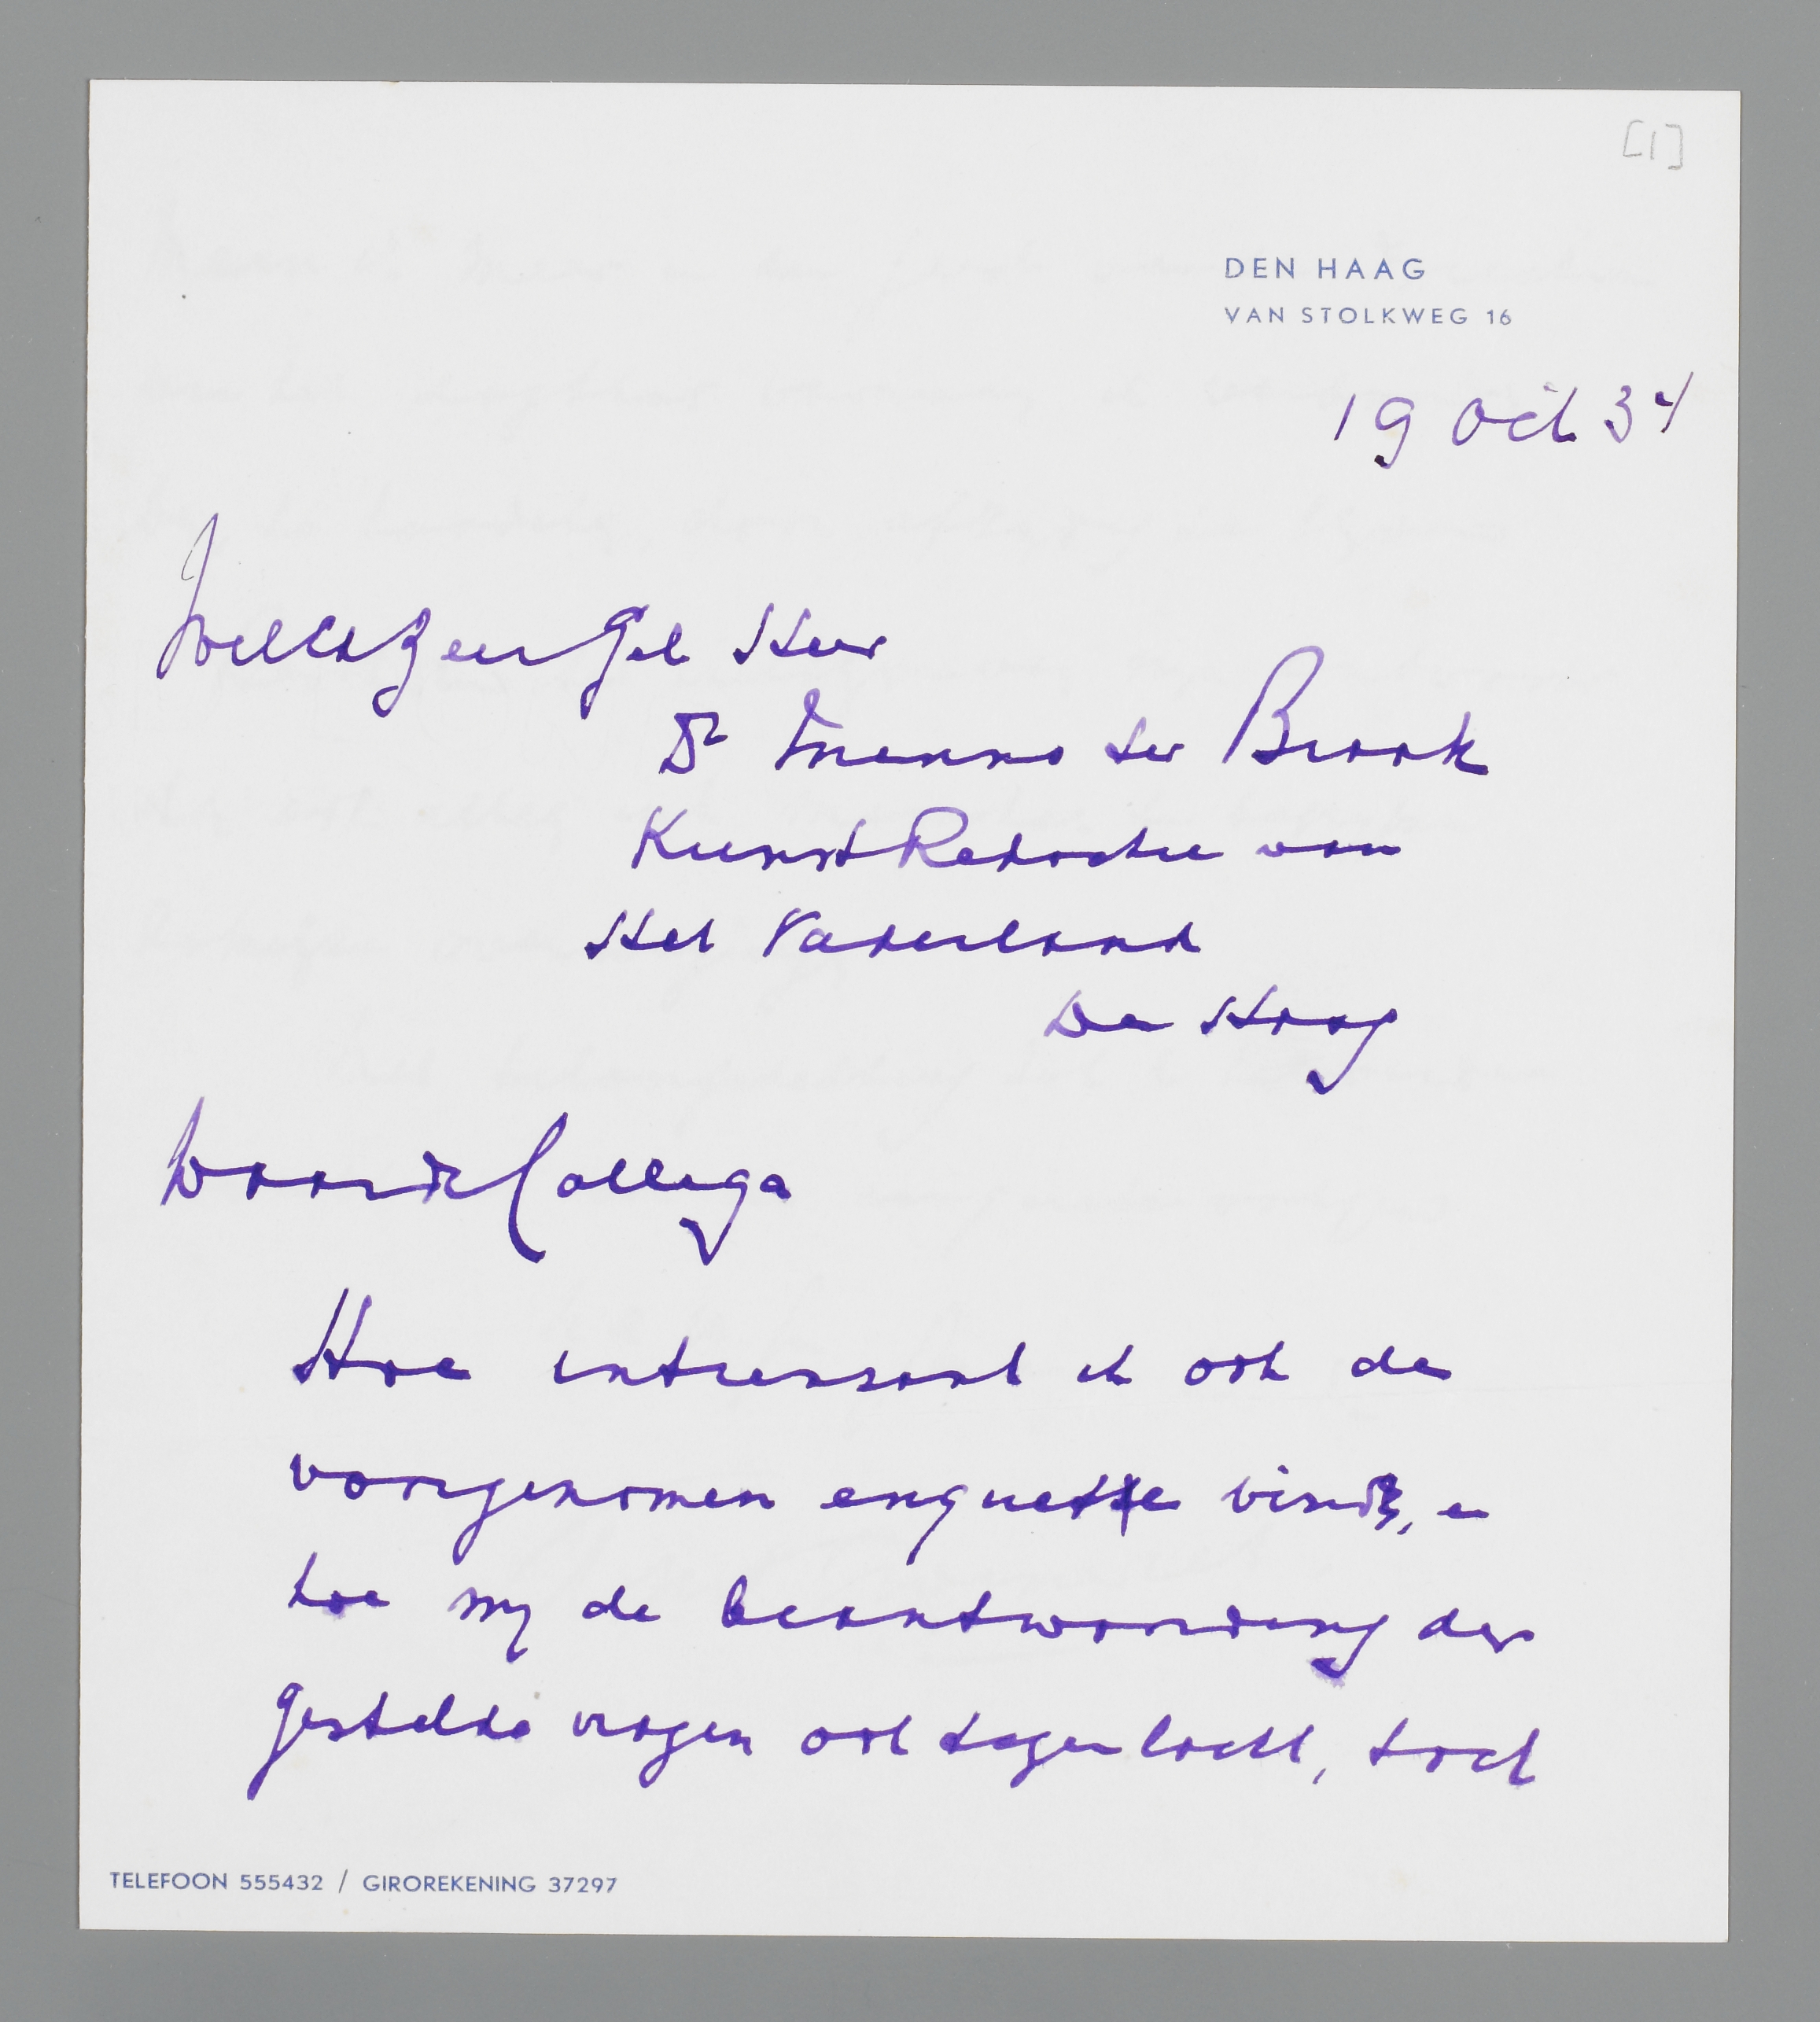 [1]
DEN HAAG
VAN STOLKWEG 16
19 Oct 34
WelEdZeerGel Heer
Dr Menno ter Braak
Kunst Redactie van
Het Vaderland
Den Haag
Waarde Collega
Hoe intressant ik ook de
voorgenomen enquette vind, en
hoe mij de beantwoording der
gestelde vragen ook tegen lacht, toch
TELEFOON 555432 / GIROREKENING 37297